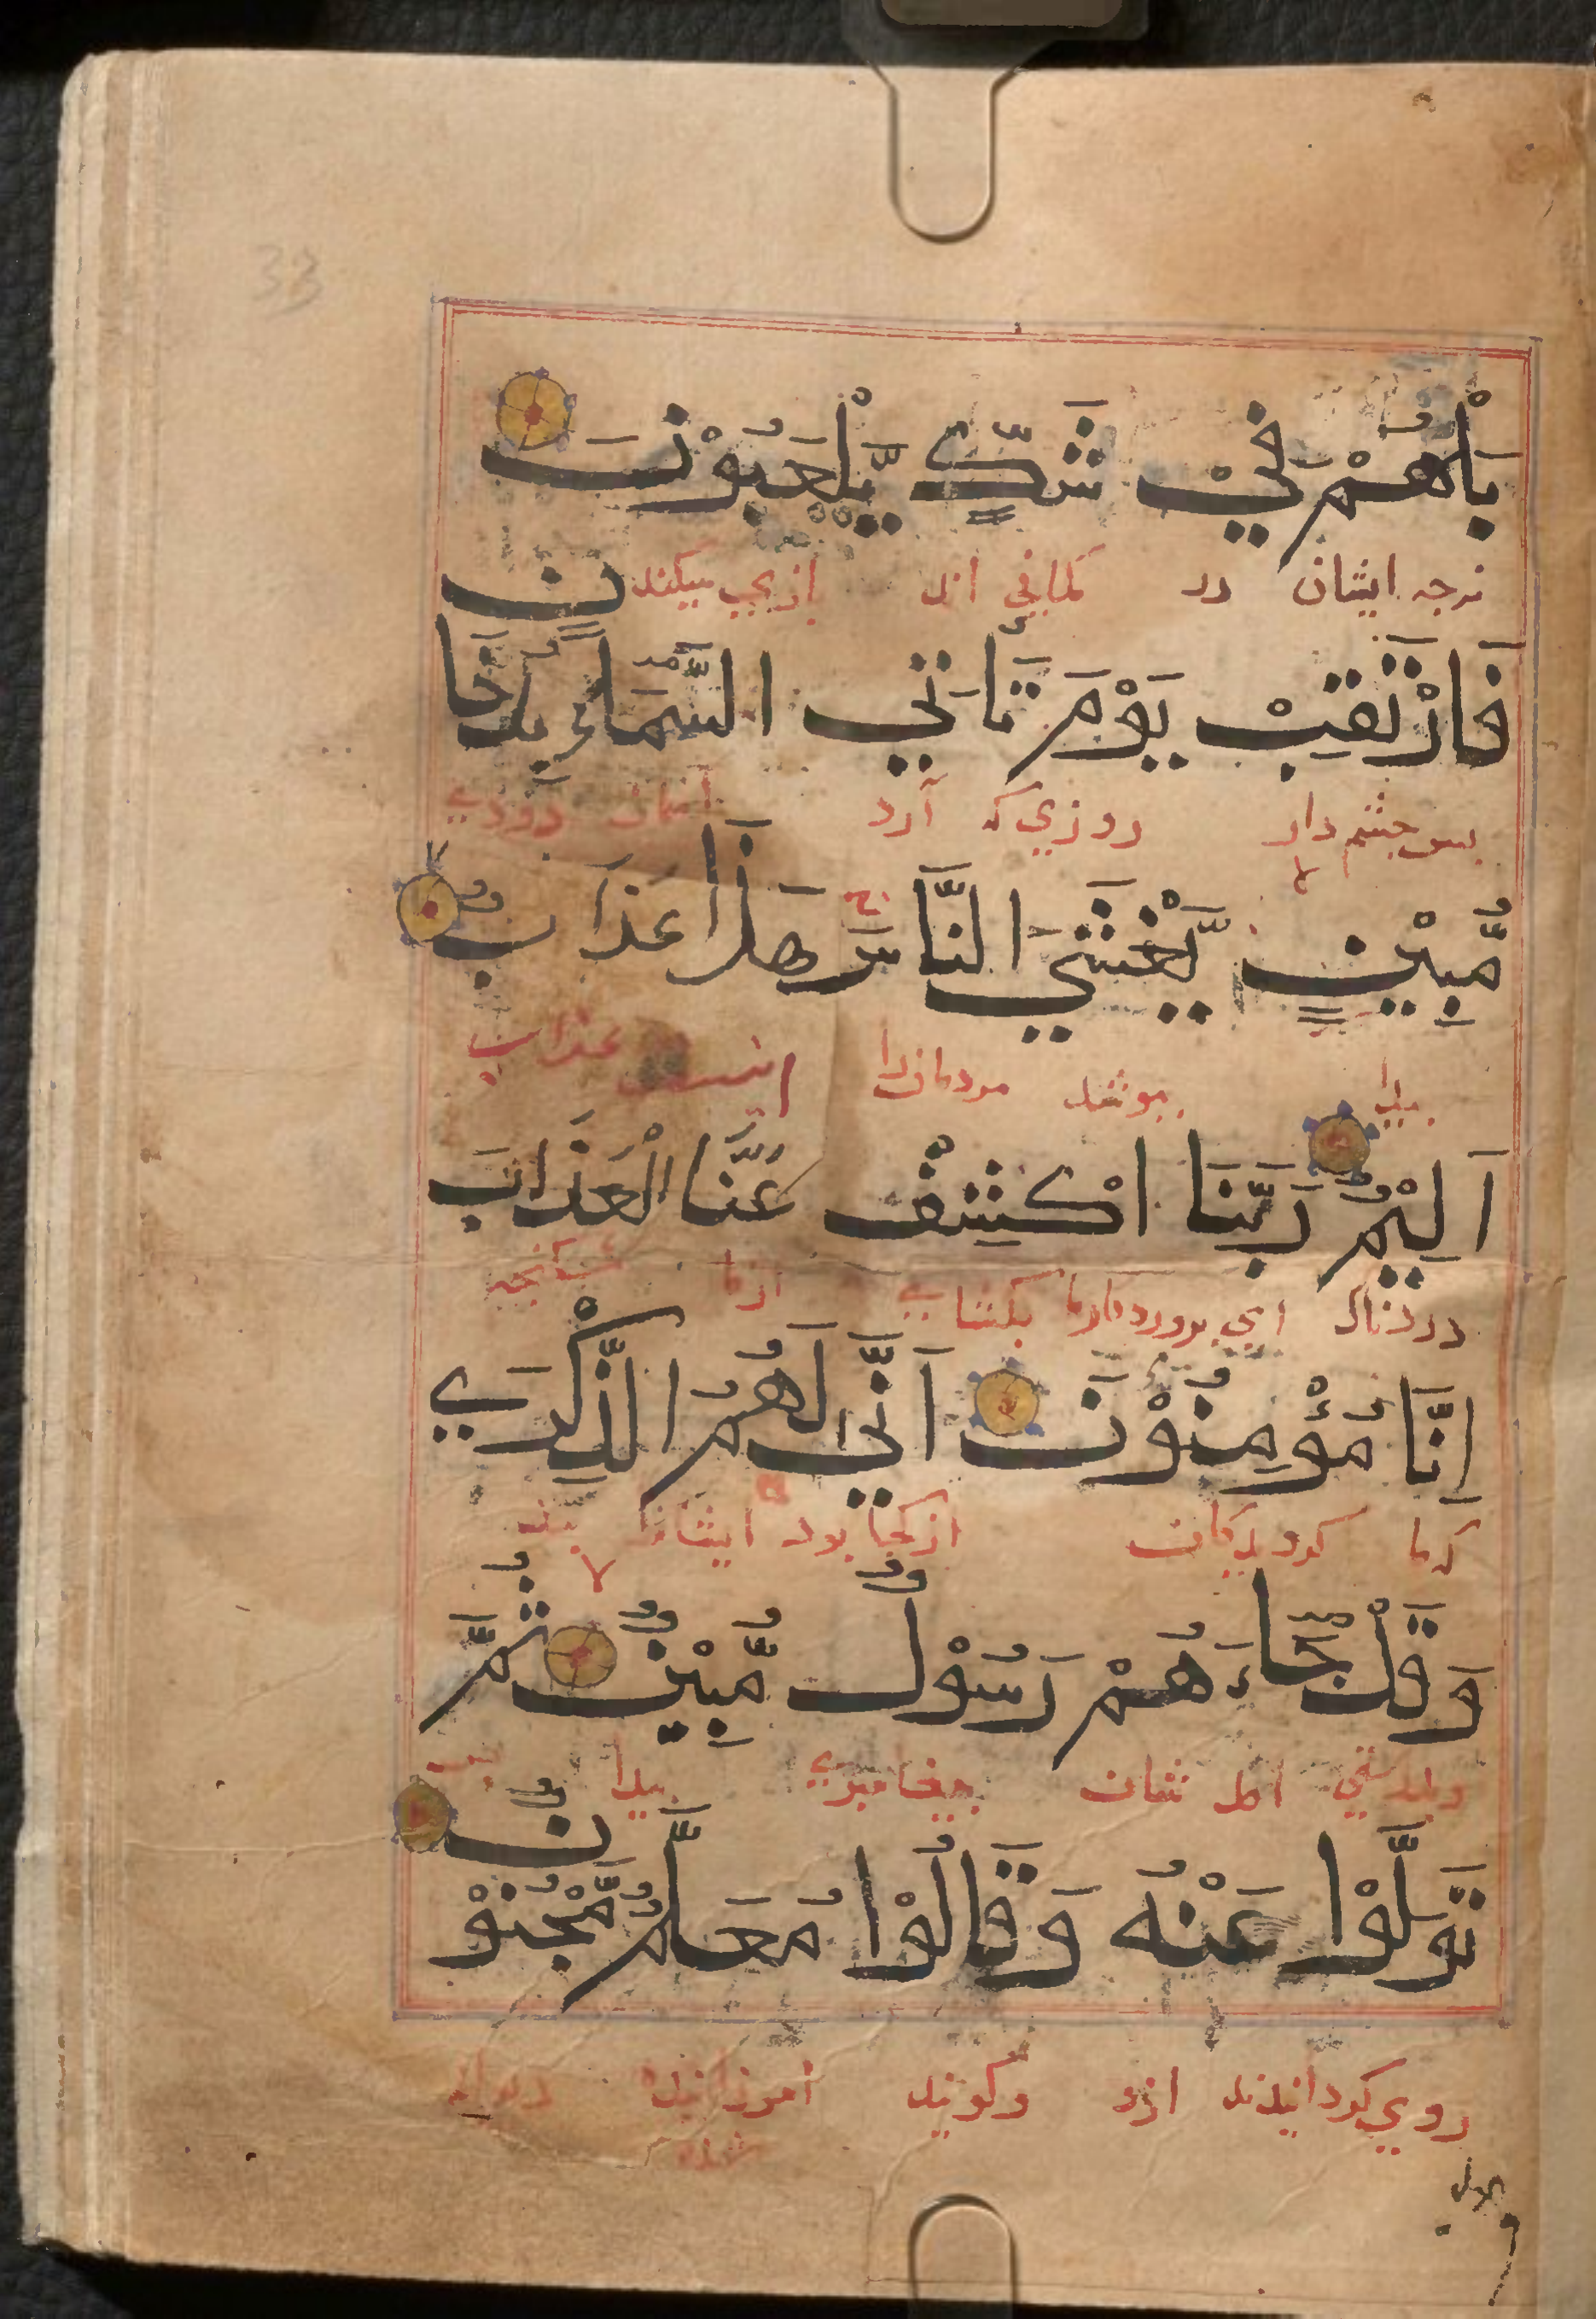 33
بَلْ هُمْ فِيْ شَكٍّ يَّلْعَبُوْنَ
نرجه ایشان در کمانی اند بازیی میکنند
فَارْتَقِبْ يَوْمَ تَأْتِي السَّمَاءُ بِدُخَانٍ
بس جشم دار روزی که آرد آسمان دودی
مُّبِيْنٍ يَّغْشَي النَّاسَ هٰذَا عَذَابٌ
بیدا ببوشد مردمانرا اینست عذاب
اَلِيْمٌ رَبَّنَا اكْشِفْ عَنَّا الْعَذَابَ
دردناک ای بروردکارما بکشای ازما شکنجه
اِنَّا مُؤْمِنُوْنَ اَنّٰي لَهُمُ الذِّكْرٰي
که ما کرویدکان از کجا بود ایشانرا بند
وَقَدْ جَاءَهُمْ رَسُوْلٌ مُّبِيْنٌ ثُمَّ
وبدرستی امد شان بیغامبری بیدا بس
تَوَلَّوْا عَنْهُ وَقَالُوْا مُعَلَّمٌ مَّجْنُوْنٌ
روی کردانیدند ازو وکویند اموزانیده دیوانه
شده